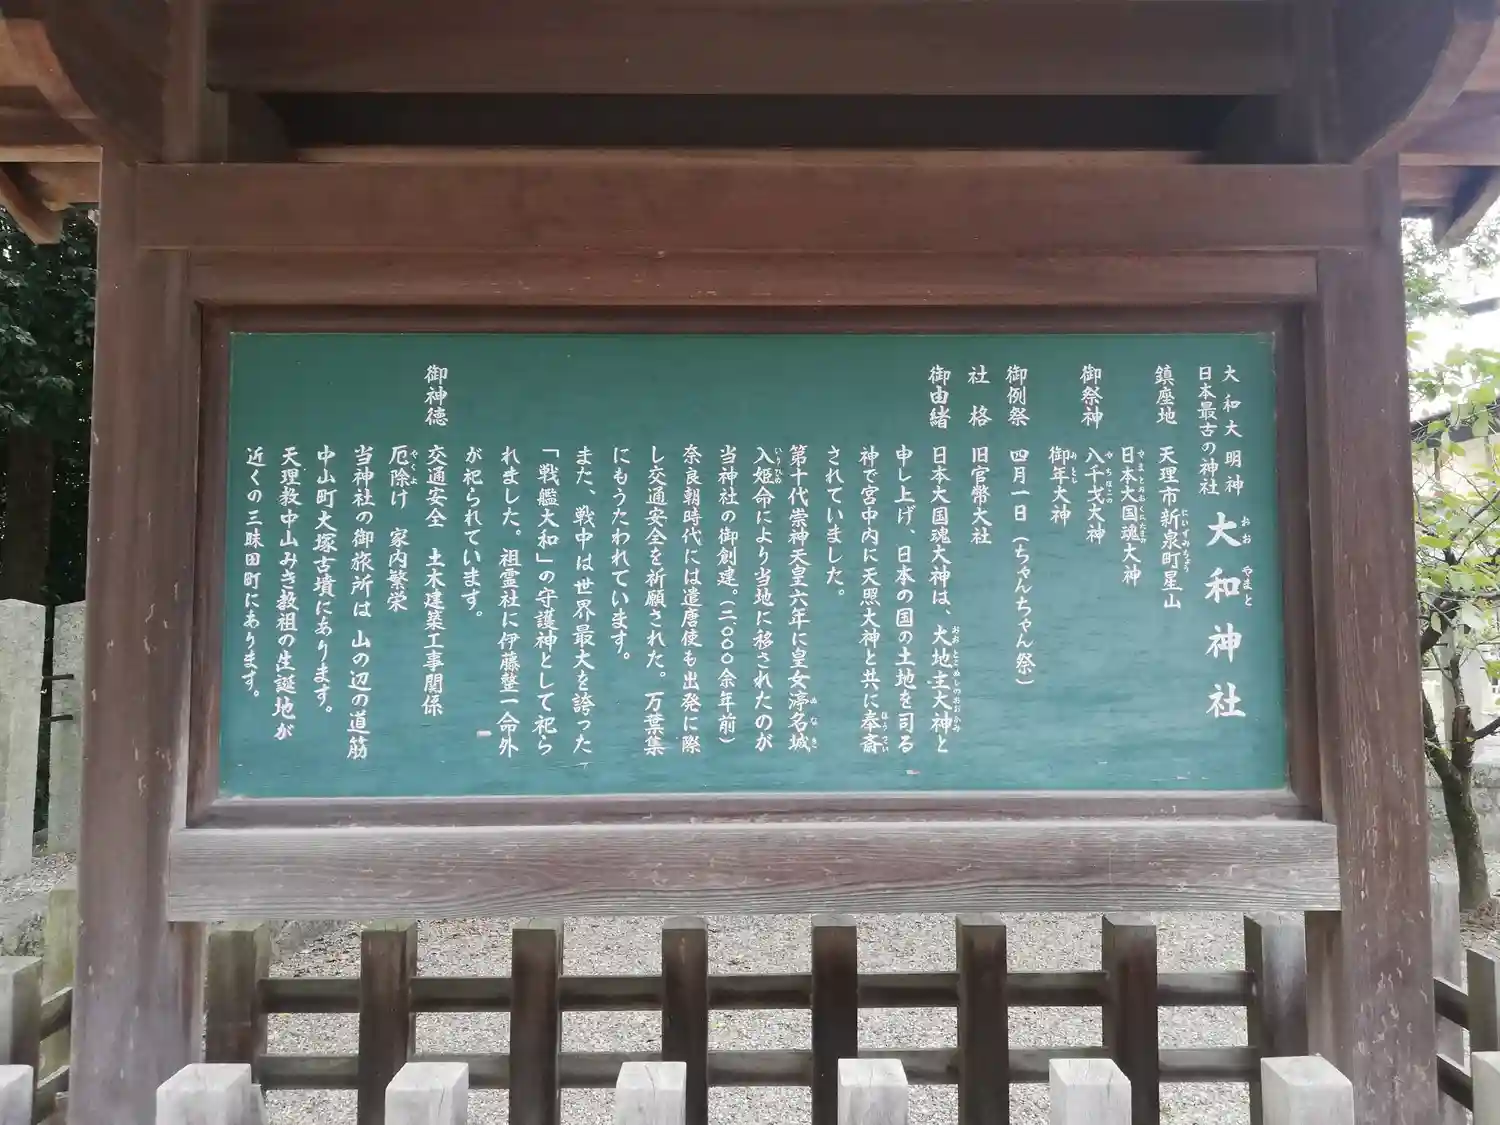 大和大明神
日本最古の神社
大和神社
おおやまと
鎮座地 天理市新泉町星山
にいずみちょう
御祭神 日本大国魂大神
やまとおおくにたま
八千戈大神
やちほこの
御年大神
みとし
御例祭 四月一日(ちゃんちゃん祭)
社格 旧官幣大社
御由緒 日本大国魂大神は、大地主大神と
おおとこぬしのおおかみ
申し上げ、日本の国の土地を司る
神で宮中内に天照大神と共に奉斎
ほうさい
されていました。
第十代崇神天皇六年に皇女渟名城
ぬなき
入姫命により当地に移されたのが
いりひめ
当神社の御創建。(二、〇〇〇余年前)
奈良朝時代には遣唐使も出発に際
し交通安全を祈願された。万葉集
にもうたわれています。
また、戦中は世界最大を誇った
「戦艦大和」の守護神として祀ら
れました。祖霊社に伊藤整一命外
が祀られています。
御神徳 交通安全 土木建築工事関係
厄除け 家内繁栄
やくよ
当神社の御旅所は 山の辺の道筋
中山町大塚古墳にあります。
天理教中山みき教祖の生誕地が
近くの三昧田町にあります。